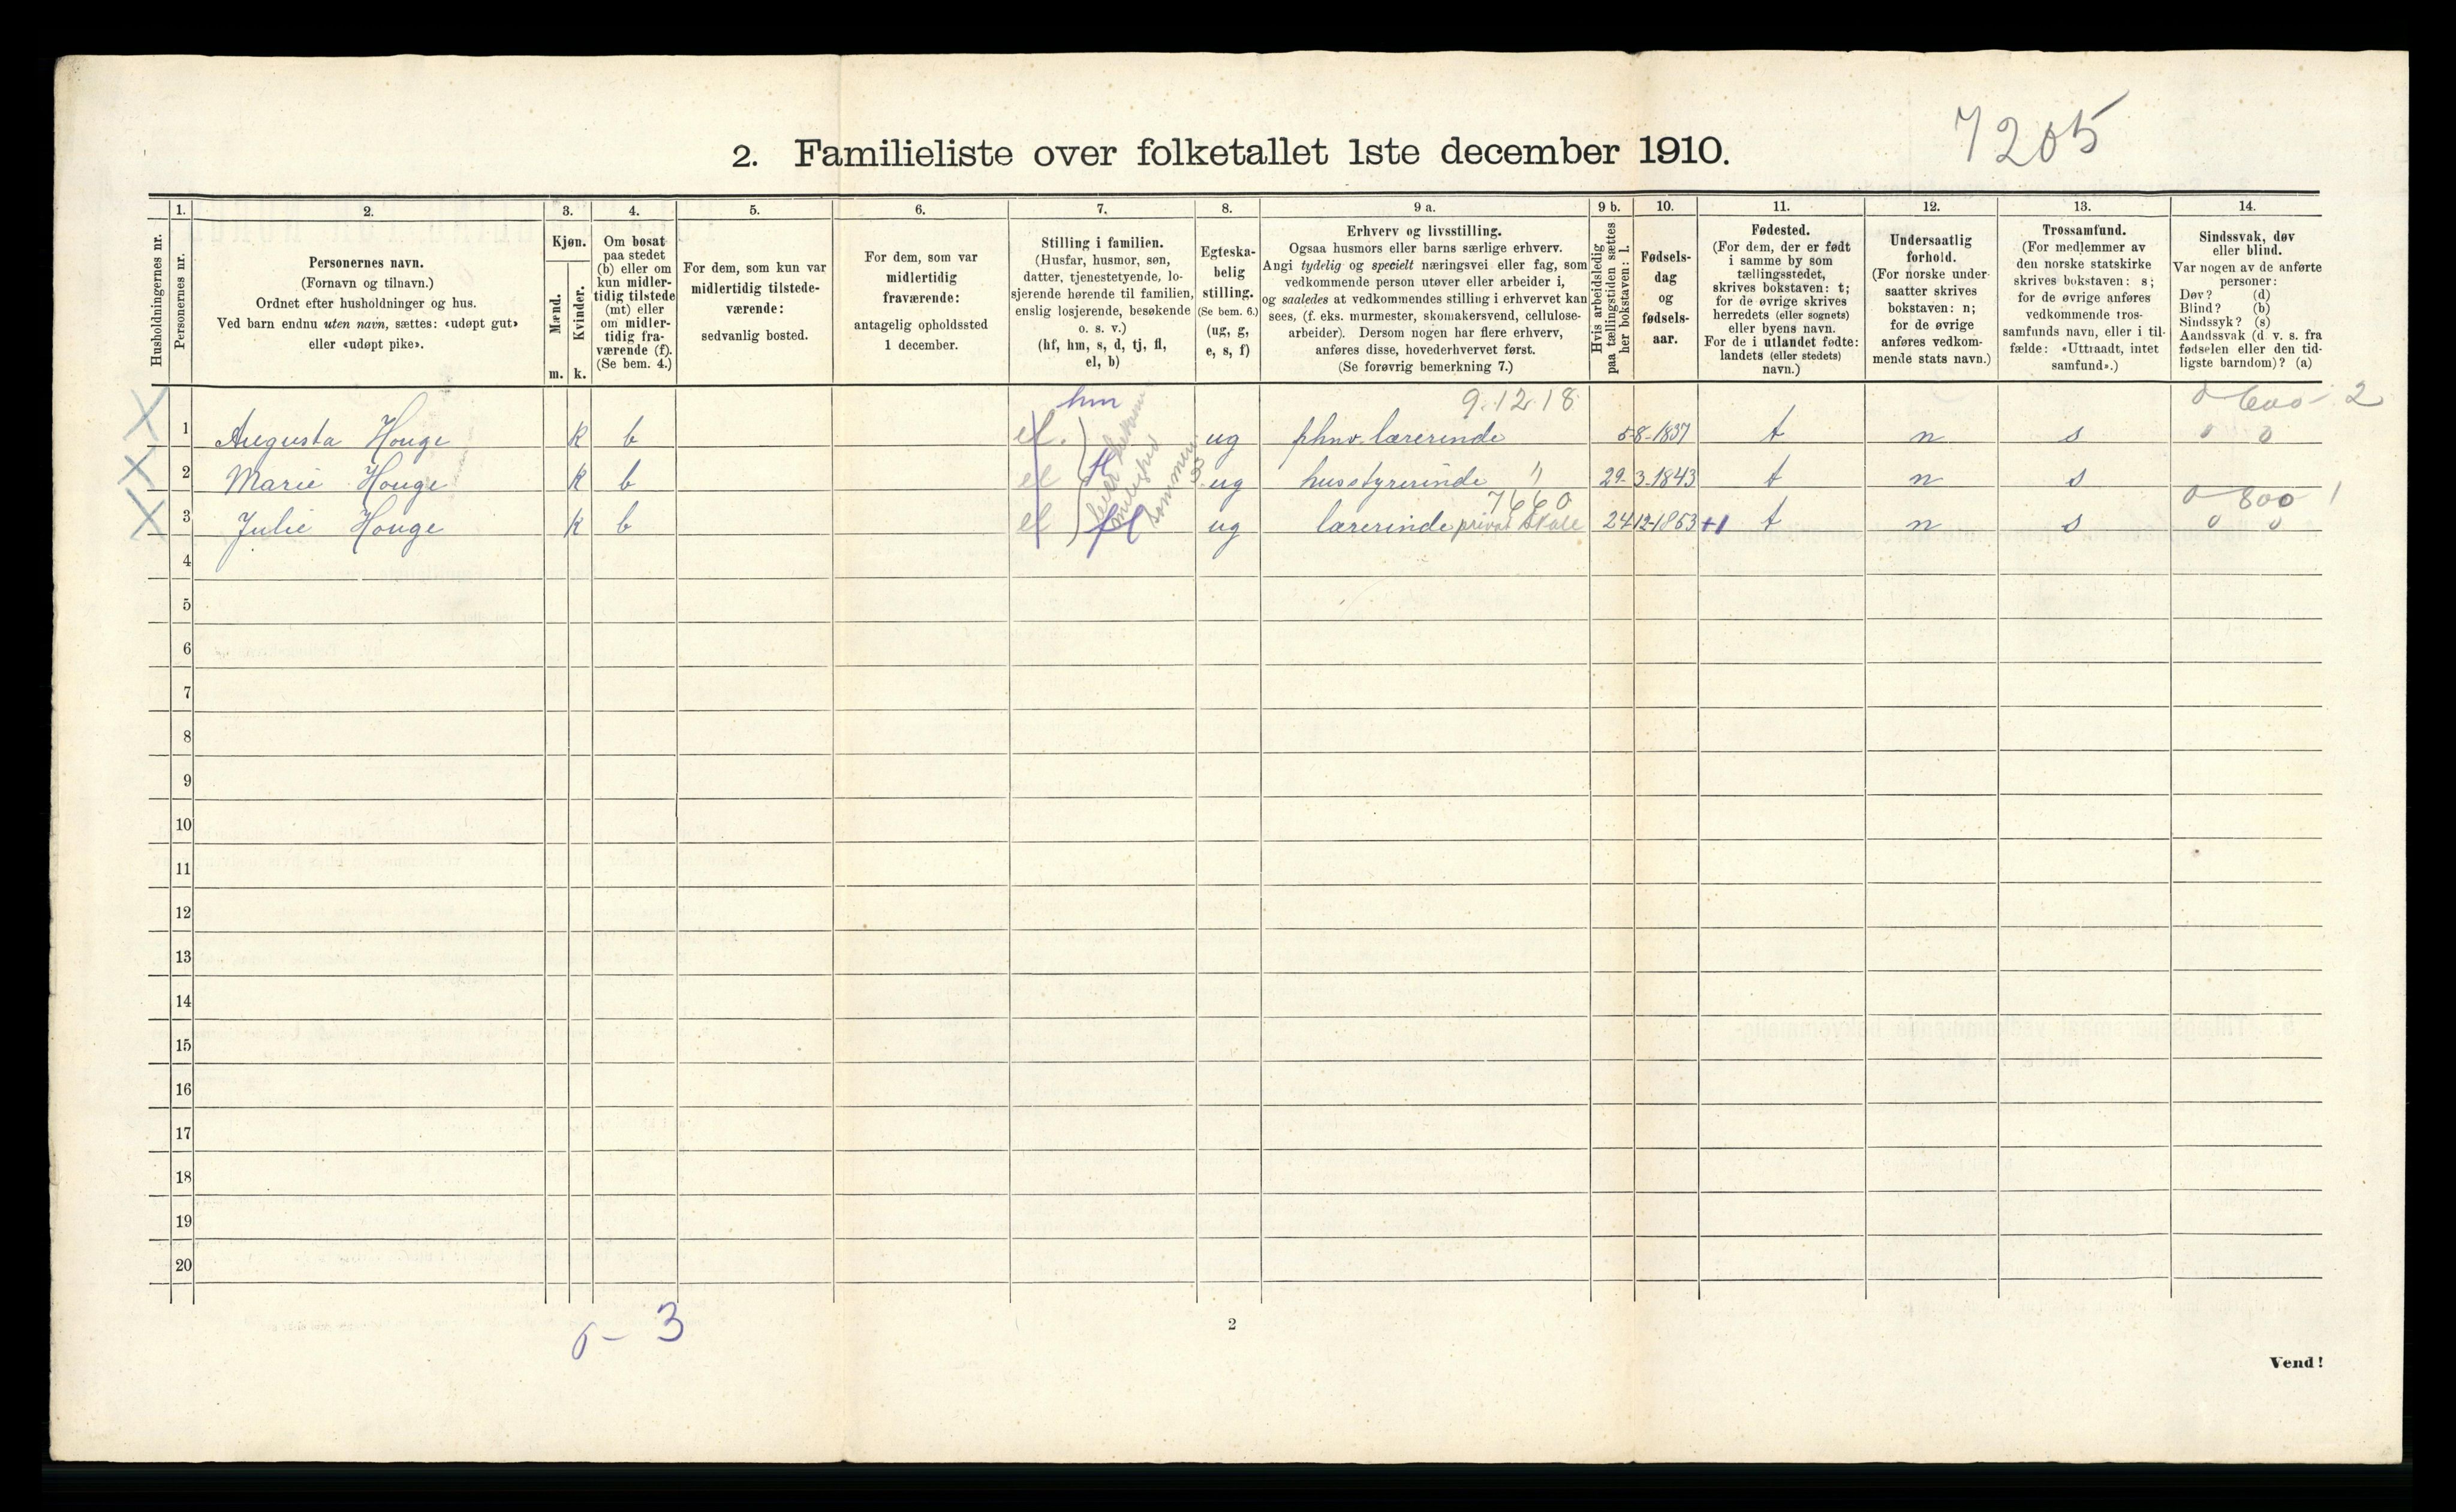 7205
2. Familieliste over folketallet 1ste december 1910.
Husholdningernes nr.
1.
Personernes nr.
2.
Personernes navn.
(Fornavn og tilnavn.)
Ordnet efter husholdninger og hus.
Ved barn endnu uten navn, sættes: «udøpt gut»
eller «udøpt pike».
3.
Kjøn.
Mænd.
Kvinder.
m.
k.
4.
Om bosat
paa stedet
(b) eller om
kun midler-
tidig tilstede
(mt) eller
om midler-
tidig fra-
værende (f).
(Se bem. 4.)
5.
For dem, som kun var
midlertidig tilstede-
værende:
sedvanlig bosted.
6.
For dem, som var
midlertidig
fraværende:
antagelig opholdssted
1 december.
7.
Stilling i familien.
(Husfar, husmor, søn,
datter, tjenestetyende, lo-
sjerende hørende til familien,
enslig losjerende, besøkende
o. s. v.)
(hf, hm, s, d, tj, fl,
el, b)
8.
Egteska-
belig
stilling.
(Se bem. 6.)
(ug, g,
e, s, f)
9 a.
Erhverv og livsstilling.
Ogsaa husmors eller barns særlige erhverv.
Angi tydelig og specielt næringsvei eller fag, som
vedkommende person utøver eller arbeider i,
og saaledes at vedkommendes stilling i erhvervet kan
sees, (f. eks. murmester, skomakersvend, cellulose-
arbeider). Dersom nogen har flere erhverv,
anføres disse, hovederhvervet først.
(Se forøvrig bemerkning 7.)
9 b.
Hvis arbeidsledig
paa tællingstiden sættes
her bokstaven: l.
10.
Fødsels-
dag
og
fødsels-
aar.
11.
Fødested.
(For dem, der er født
i samme by som
tællingsstedet,
skrives bokstaven: t;
for de øvrige skrives
herredets (eller sognets)
eller byens navn.
For de i utlandet fødte:
landets (eller stedets)
navn.)
12.
Undersaatlig
forhold.
(For norske under-
saatter skrives
bokstaven: n;
for de øvrige
anføres vedkom-
mende stats navn.)
13.
Trossamfund.
(For medlemmer av
den norske statskirke
skrives bokstaven: s;
for de øvrige anføres
vedkommende tros-
samfunds navn, eller i til-
fælde: «Uttraadt, intet
samfund».)
14.
Sindssvak, døv
eller blind.
Var nogen av de anførte
personer:
Døv? (d)
Blind? (b)
Sindssyk? (s)
Aandssvak (d. v. s. fra
fødselen eller den tid-
ligste barndom)? (a)
hm 9.12.18 0 600 - 2
1 Augusta Houge k b el. ug lærerinde 5-8-1837 t n s 0 0
2 Marie Houge k b el fl ug husstyrerinde " 29-3-1843 t n s
7660 0 800 1
3 Julie Houge k b el fl ug lærerinde privat skole 24 12-1853 +1 t n s 0 0
4
5
6
7
8
9
10
11
12
13
14
15
16
17
18
19
20
0 - 3
2
Vend!